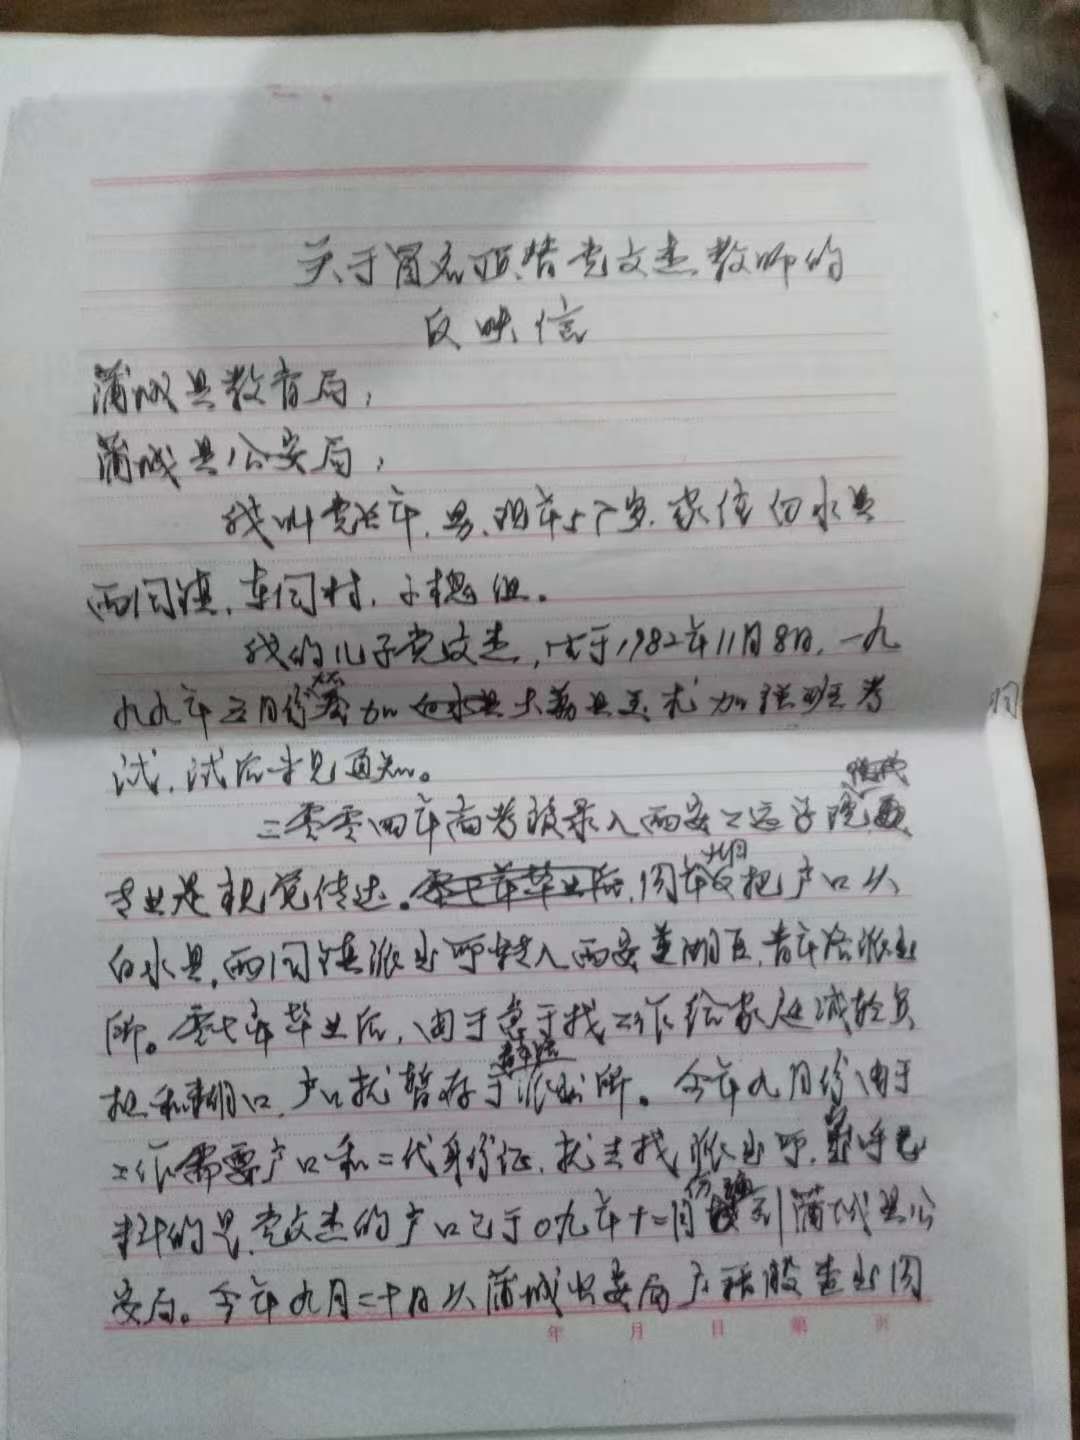 关于冒名顶替党文杰教师的
反映信
蒲城县教育局：
蒲城县公安局：
我叫党兴年，男，现年57岁，家住白水县
西固镇，车固村，子槐组。
我的儿子党文杰，生于1982年11月8日，一九
九九年五月份参加大荔县美术加强班考
试，试后未见通知。
二零零四年高考录入西安学院
专业是视觉传达。同年九月把户口从
白水县，西固镇派出所转入西安莲湖区，青年路派出
所。零七年毕业后，由于急于找工作给家庭减轻负
青年路
担和糊口，户口就暂存于派出所。今年九月份由于
工作需要户口和二代身份证，就去找派出所，出乎意
料的是，党文杰的户口已于0九年十二月份到蒲城县公
安局。今年九月二十日从蒲城公安局户籍股查出同
年 月 日 第 页